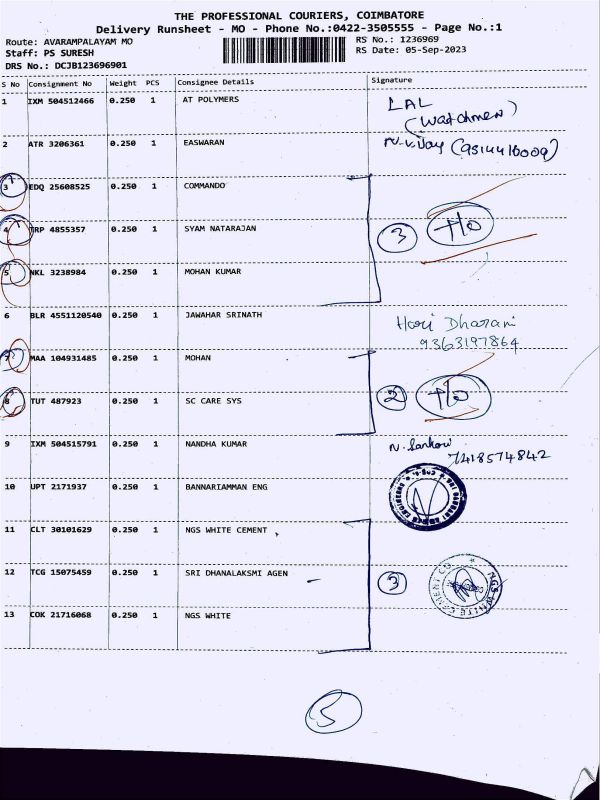 THE PROFESSIONAL COURIERS, COIMBATORE
Delivery Runsheet - MO - Phone No.:0422-3505555 - Page No.:1
Route: AVARAMPALAYAM MO
RS No.: 1236969
Staff: PS SURESH
RS Date: 05-Sep-2023
DRS No.: DCJB123696901
S No Consignment No Weight PCS Consignee Details Signature
1 IXM 504512466 0.250 1 AT POLYMERS LAL
(Watchmen)
2 ATR 3206361 0.250 1 EASWARAN N.Vijay (9514416009)
3 EDQ 25608525 0.250 1 COMMANDO
4 TRP 4855357 0.250 1 SYAM NATARAJAN 3 H/o
5 NKL 3238984 0.250 1 MOHAN KUMAR
6 BLR 4551120540 0.250 1 JAWAHAR SRINATH Hari Dharani
9363197864
7 MAA 104931485 0.250 1 MOHAN
8 TUT 487923 0.250 1 SC CARE SYS 2 H/o
9 IXM 504515791 0.250 1 NANDHA KUMAR N. Sankari
7418574842
10 UPT 2171937 0.250 1 BANNARIAMMAN ENG
11 CLT 30101629 0.250 1 NGS WHITE CEMENT
12 TCG 15075459 0.250 1 SRI DHANALAKSMI AGEN 3
NGS WHITE CEMENT CO
13 COK 21716068 0.250 1 NGS WHITE
5